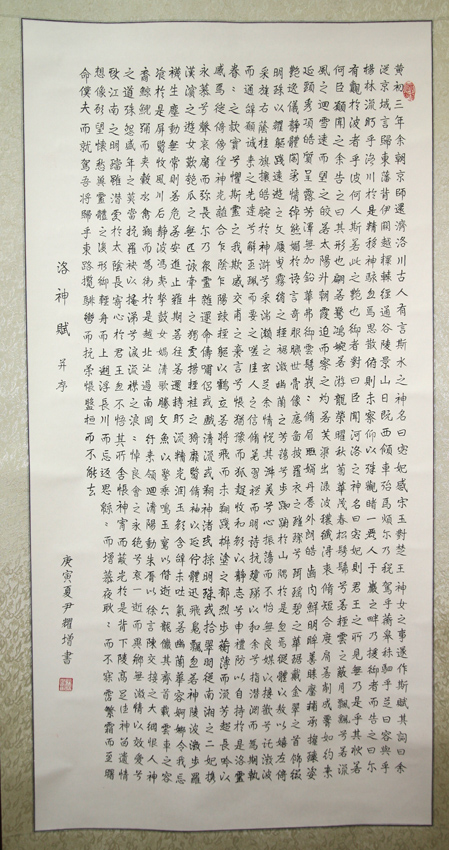 黃初三年余朝京師還濟洛川古人有言斯水之神名曰宓妃感宋玉對楚王神女之事遂作斯賦其詞曰余
從京域言歸東藩背伊闕越轘轅經通谷陵景山日既西傾車殆馬煩尔乃稅駕乎蘅皋秣駟乎芝田容與乎
楊林流眄乎洛川於是精移神駭忽焉思散俯則未察仰以殊觀睹一麗人于巖之畔乃援御者而告之曰尔
有覿於彼者乎彼何人斯若此之艷也御者對曰臣聞河洛之神名曰宓妃則君王之所見無乃是乎其狀若
何臣願聞之余告之曰其形也翩若驚鴻婉若游龍榮曜秋菊華茂春松髣髴兮若輕雲之蔽月飄飖兮若流
風之迴雪遠而望之皎若太陽升朝霞迫而察之灼若芙蕖出淥波穠纖得衷脩短合度肩若削成腰如約束
延頸秀項皓質呈露芳澤無加鉛華弗御雲髻峩々脩眉聯娟丹唇外朗皓齒內鮮明眸善睞靨輔承權瓌姿
艷逸儀靜體閑柔情綽態媚於語言奇服曠世骨像應圖披羅衣之璀璨兮珥瑤碧之華琚戴金翠之首飾綴
明珠以耀軀踐遠遊之文履曳霧綃之輕裾微幽蘭之芳藹兮步踟躕於山隅於是忽焉縱體以敖以嬉左倚
采旄右蔭桂旗攘皓腕於神滸兮采湍瀨之玄芝余情悅其淑美兮心振蕩而不怡無良媒以接歡兮託微波
而通辭願誠素之先達兮解玉珮而要之嗟佳人之信脩羌習禮而明詩抗瓊珶以和余兮指潛淵而為期執
眷々之款實兮懼斯靈之我欺感交甫之棄言兮悵猶豫而狐疑收和顏以靜志兮申禮防以自持於是洛靈
感焉徙倚傍徨神光離合乍陰乍陽竦輕軀以鶴立若將飛而未翔踐椒塗之郁烈步蘅薄而流芳超長吟以
永慕兮聲哀厲而弥長尔乃衆靈雜遝命儔嘯侶或戲清流或翔神渚或採明珠或拾翠羽從南湘之二妃攜
漢濱之遊女歎匏瓜之無匹詠牽牛之獨處揚輕袿之猗靡翳脩袖以延佇體迅飛鳧飄忽若神陵波微步羅
襪生塵動無常則若危若安進止難期若往若還轉眄流精光潤玉顏含辭未吐氣若幽蘭華容婀娜令我忘
飡於是屏翳收風川后靜波馮夷擊鼓女媧清歌騰文魚以警乘鳴玉鸞以偕逝六龍儼其齊首載雲車之容
裔鯨鯢踊而夾轂水禽翔而為衛於是越北沚過南岡紆素領迴清陽動朱唇以徐言陳交接之大綱恨人神
之道殊怨盛年之莫當抗羅袂以掩涕兮淚流襟之浪々悼良會之永絕兮哀一逝而異鄉無微情以效愛兮
獻江南之明璫雖潛處於太陰長寄心於君王忽不悟其所舍悵神宵而蔽光於是背下陵高足往神留遺情
想像顧望懷愁冀靈體之復形御輕舟而上遡浮長川而忘返思緜々而增慕夜耿々而不寐霑繁霜而至曙
命僕夫而就駕吾將歸乎東路攬騑轡而抗策悵盤桓而不能去
洛神賦 并序
庚寅夏尹耀增書